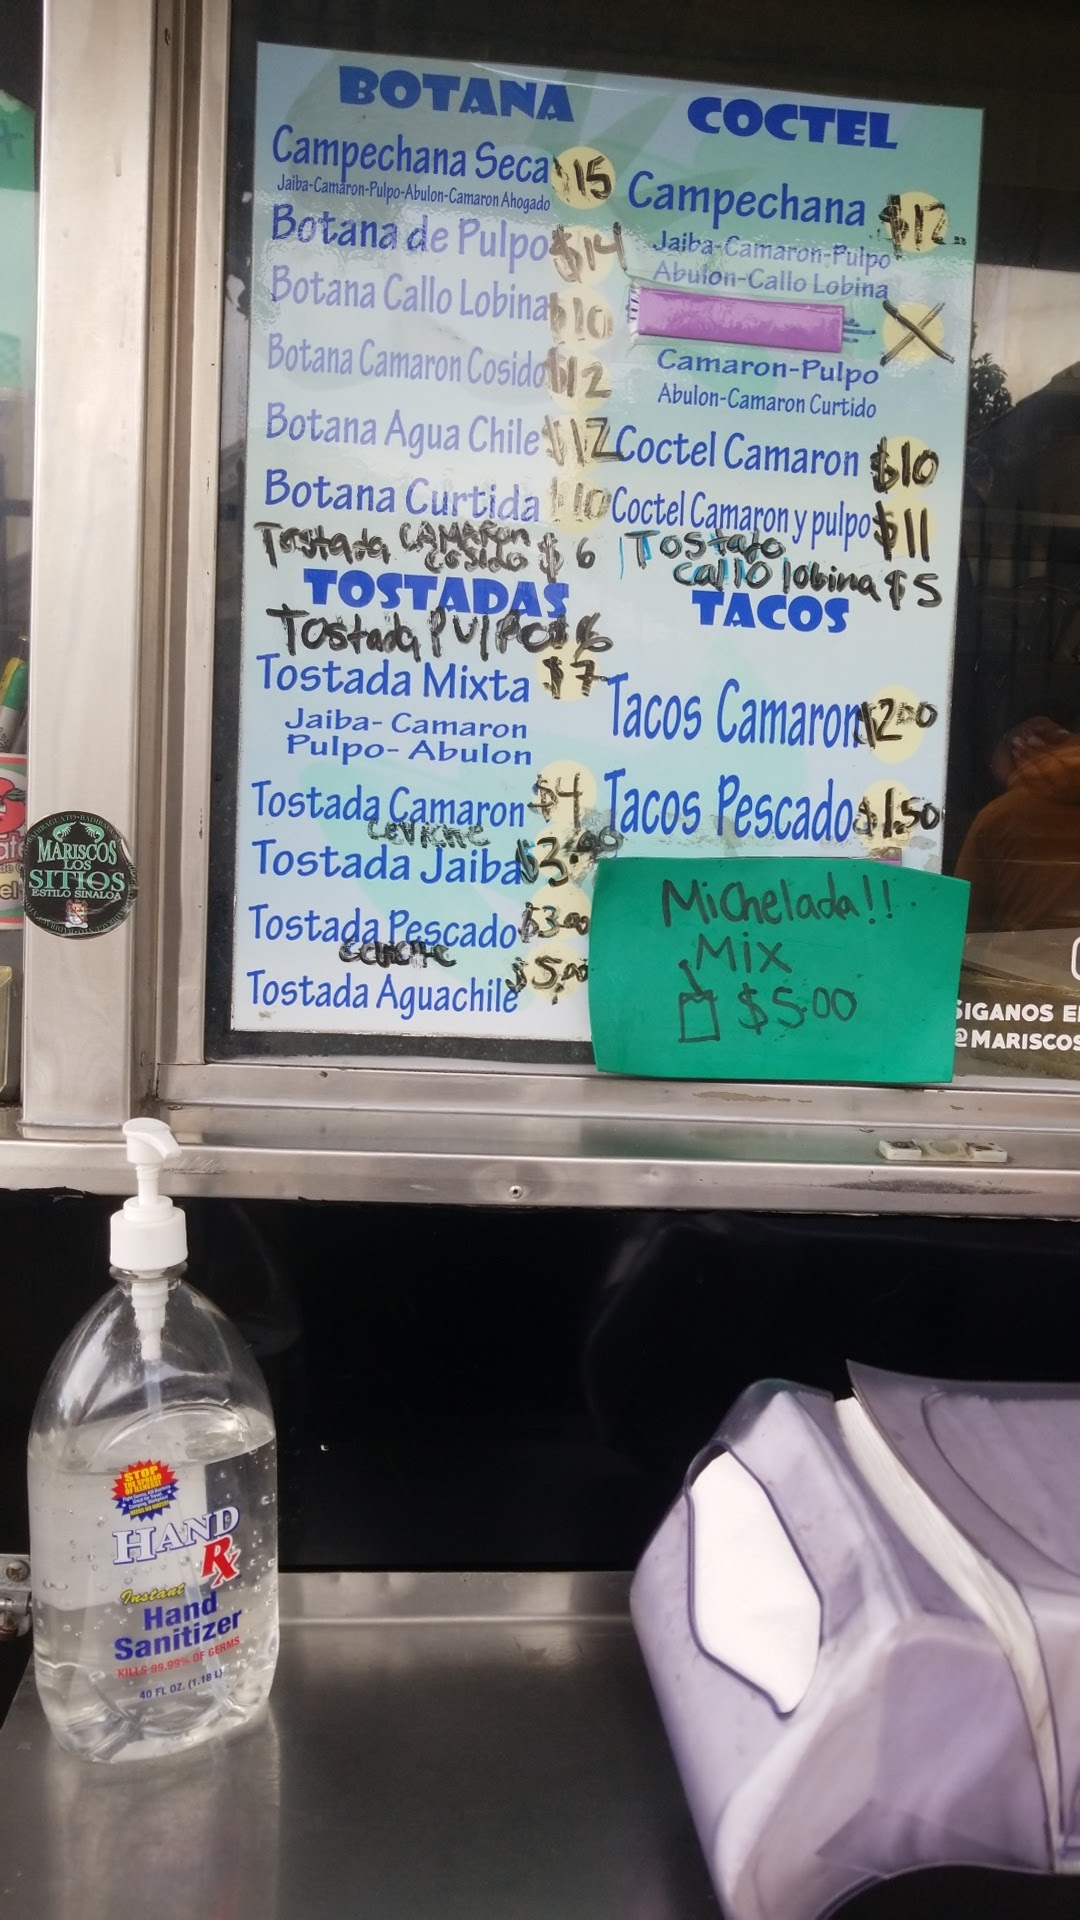 BOTANA
Campechana Seca $15
Jaiba-Camaron-Pulpo-Abulon-Camaron Ahogado
Botana de Pulpo $14
Botana Callo Lobina $10
Botana Camaron Cosido $12
Botana Agua Chile $12
Botana Curtida $10
Tostada CAMARON
COSIDO $6
TOSTADAS
Tostada PULPO
Tostada Mixta $7
Jaiba- Camaron
Pulpo- Abulon
Tostada Camaron $4
ceviche
Tostada Jaiba $3.99
Tostada Pescado $3.00
ceviche
Tostada Aguachile $5.00
COCTEL
Campechana $12
Jaiba-Camaron-Pulpo
Abulon-Callo Lobina
X
Camaron-Pulpo
Abulon-Camaron Curtido
Coctel Camaron $10
Coctel Camaron y pulpo $11
Tostada
callo lobina $5
TACOS
Tacos Camaron $2.00
Tacos Pescado $1.50
Michelada!!
MIX
$5.00
SIGANOS E
@MARISCOS
MARISCOS
LOS
SITIOS
ESTILO SINALOA
STOP
THE SPREAD
OF ILLNESS!
HAND
Rx
Instant
Hand
Sanitizer
KILLS 99.99% OF GERMS
40 FL OZ. (1.18 L)